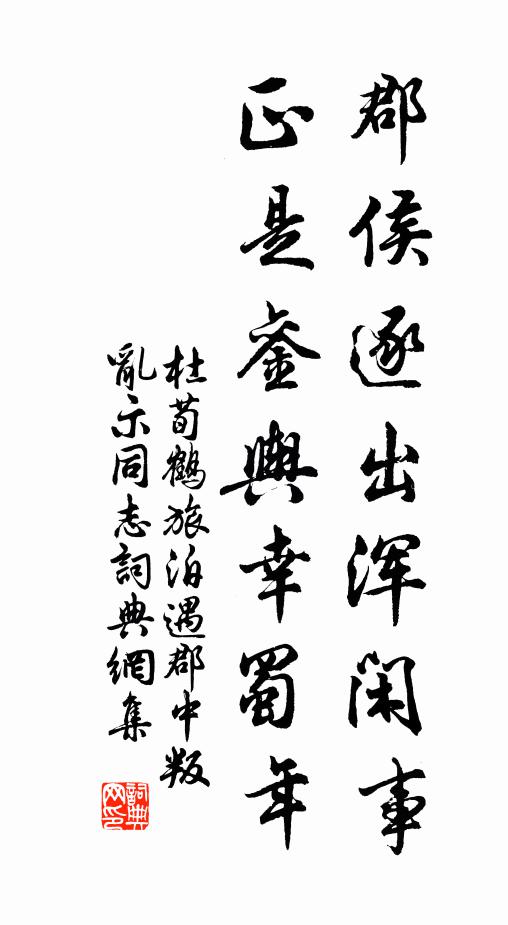 郡侯逐出浑闲事
正是銮舆幸蜀年
杜荀鶴旅泊遇郡中叛
亂示同志詞典網集
詞典
网印